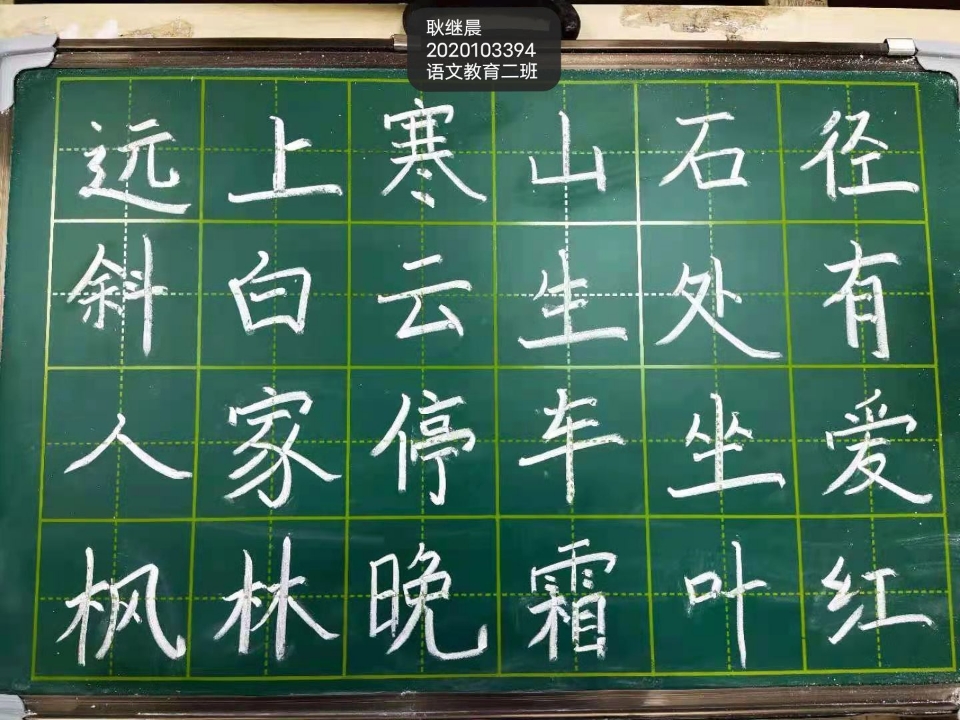 耿继晨
2020103394
语文教育二班
远上寒山石径
斜白云生处有
人家停车坐爱
枫林晚霜叶红